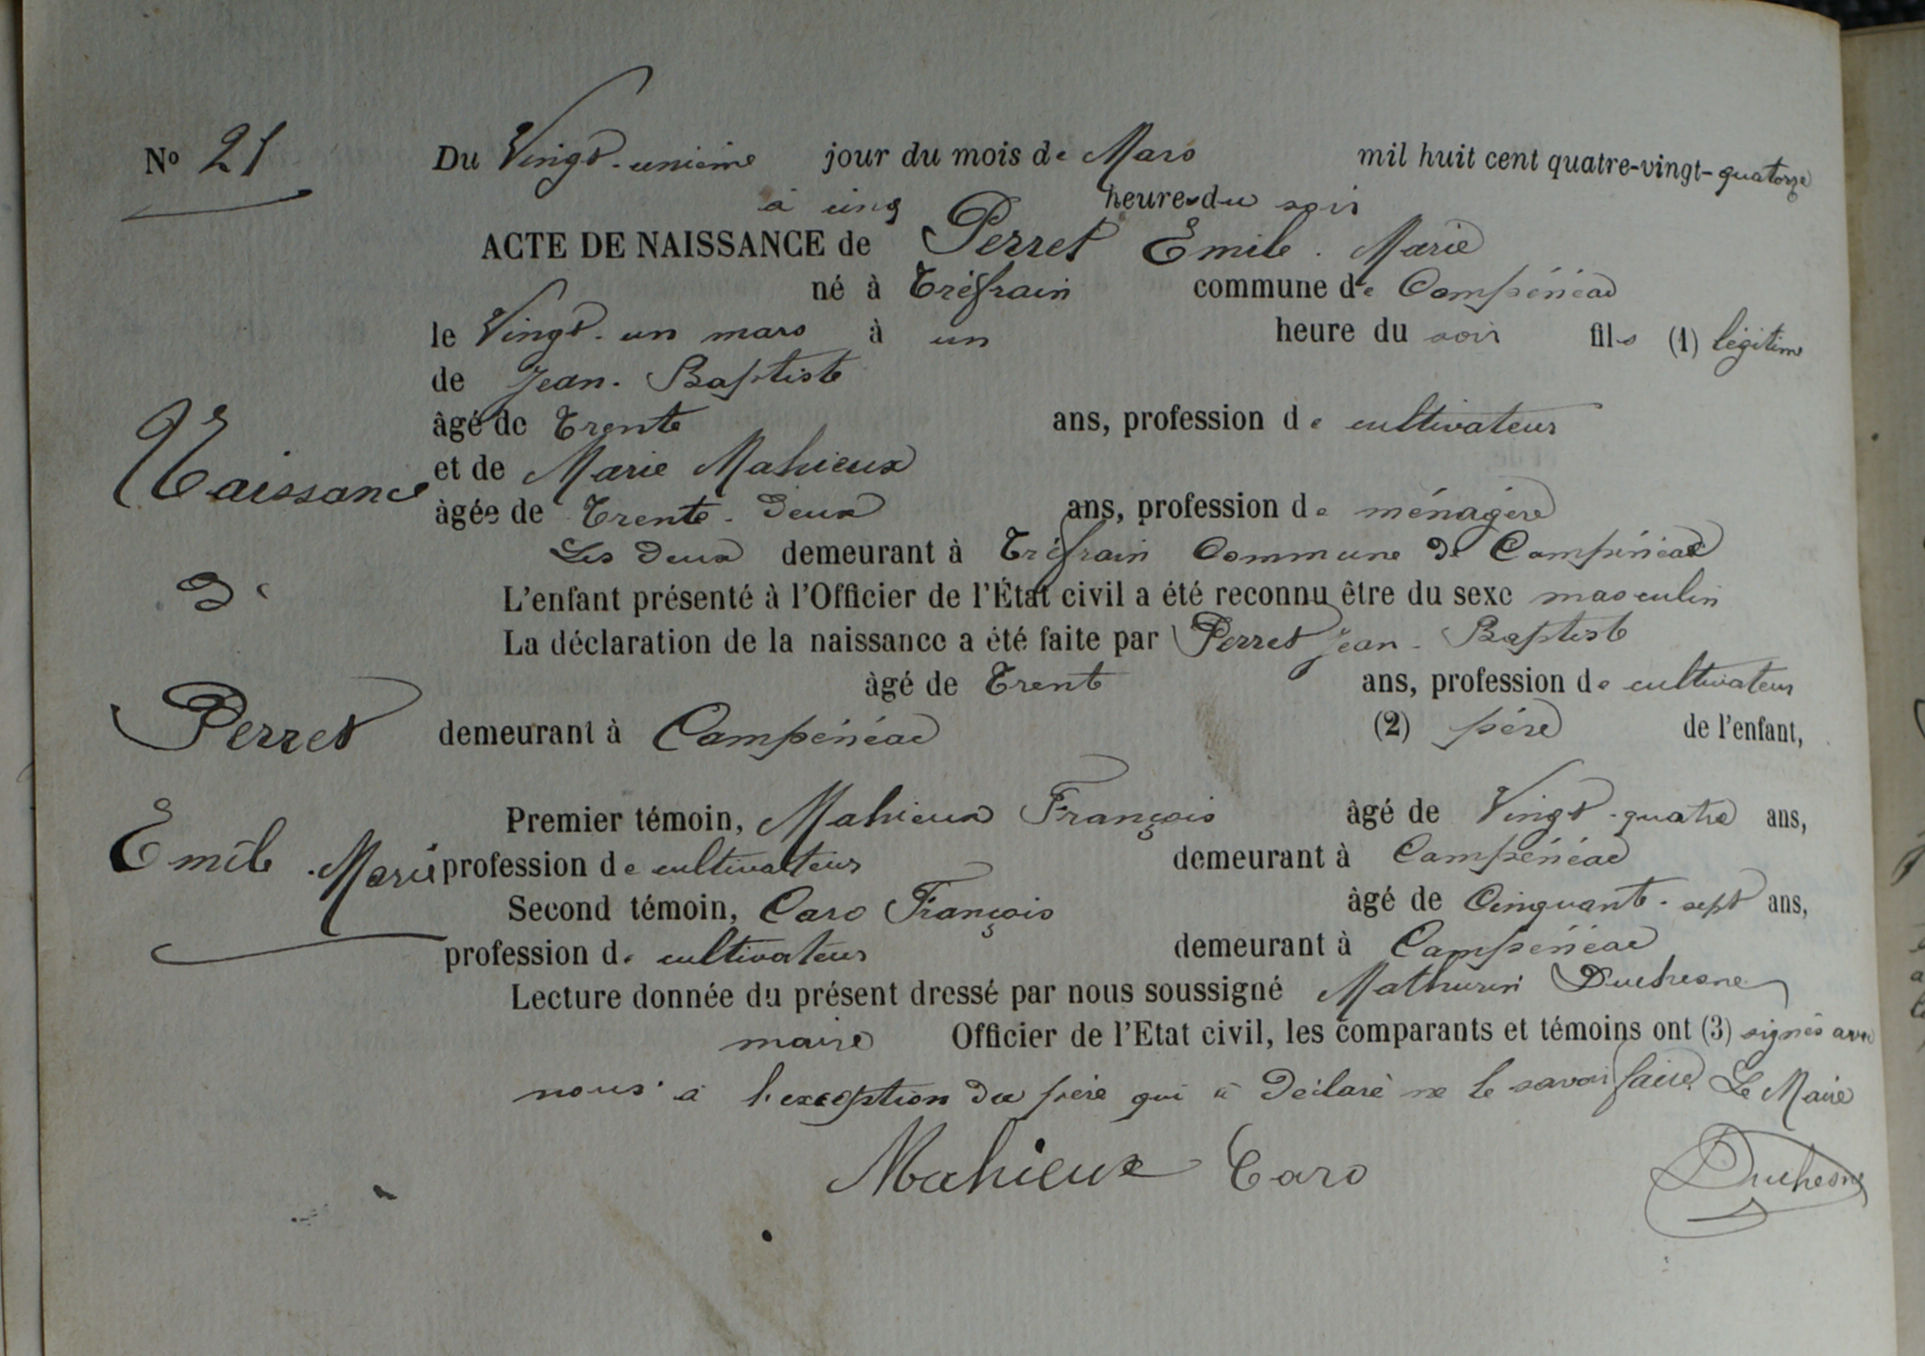 No 21
Du Vingt-unième jour du mois de Mars mil huit cent quatre-vingt-quatorze
à cinq heures du soir
ACTE DE NAISSANCE de Perret Emile. Marie
né à Tréfrain commune de Campénéac
le Vingt-un mars à un heure du soir fils (1) légitime
de Jean-Baptiste
âgé de Trente ans, profession de cultivateur
Naissance
et de Marie Mahieux
âgée de Trente-Deux ans, profession de ménagère
Les Deux demeurant à Tréfrain Commune de Campénéac
De
L'enfant présenté à l'Officier de l'État civil a été reconnu être du sexe masculin
La déclaration de la naissance a été faite par Perret Jean-Baptiste
âgé de Trente ans, profession de cultivateur
Perret
demeurant à Campénéac (2) père de l'enfant,
Premier témoin, Mahieux François âgé de Vingt-quatre ans,
Emile. Marie
profession de cultivateur demeurant à Campénéac
Second témoin, Caro François âgé de Cinquante-sept ans,
profession de cultivateur demeurant à Campénéac
Lecture donnée du présent dressé par nous soussigné Mathurin Duchesne
maire Officier de l'Etat civil, les comparants et témoins ont (3) signés avec
nous à l'exception du père qui a Déclaré ne le savoir faire. Le Maire
Mahieux Caro Duchesne